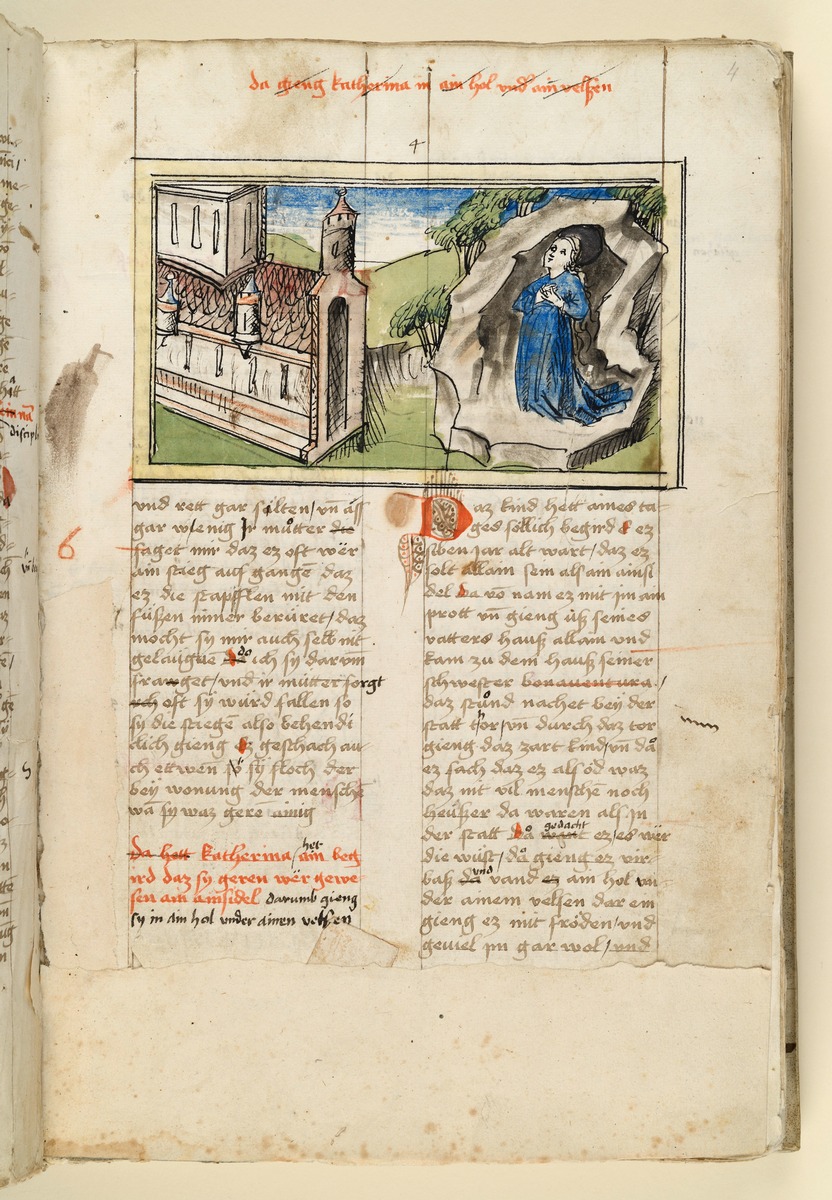 da gieng katherina in ain hol vnd ain velsen
4
4
vnd rett gar sälten / vn̄ äss
gar wienig Jr můtter die
saget mir daz ez oft wër
ain stieg auf gangē daz
ez die stapfflen mit den
füßen nimer berüret / daz
möcht sy mir auch selb nit
gelaugnē do ich sy darvm̄
franget / vnd ir mütter sorgt
ich oft sy würd fallen so
sy die stiegē also behendi
clich gieng ez geschach au-
ch ettwen sy floch der
bey wonung der menschē
wā sy waz gerē ainig
da hett katherina / het ain beg
ird daz sy geren wër gewe-
sen ain ainsidel darumb gieng
sy in ain hol vnder ainen velsen
6
Daz kind hett aines ta-
ges söllich begird & ez
siben jar alt wart / daz ez
solt allain sein als ain ainsi
del da vō nam ez mit jm ain
prott vn̄ gieng üß seines
vatters hauß allain vnd
kam zu dem hauß seiner
schwester bonauentura /
daz stůnd nachet bey der
statt thor / vn̄ durch daz tor
gieng daz zart kind / vn̄ då
ez sach daz ez als öd waz
daz nit vil menschē noch
heüßer da waren als jn
der statt Då gedacht ez / es wër
die wüst / då gieng ez vir-
baß vnd vand ez ain hol vn-
der ainem velsen dar ein
gieng ez mit fröden / vnd
geviel jm gar wol / vnd